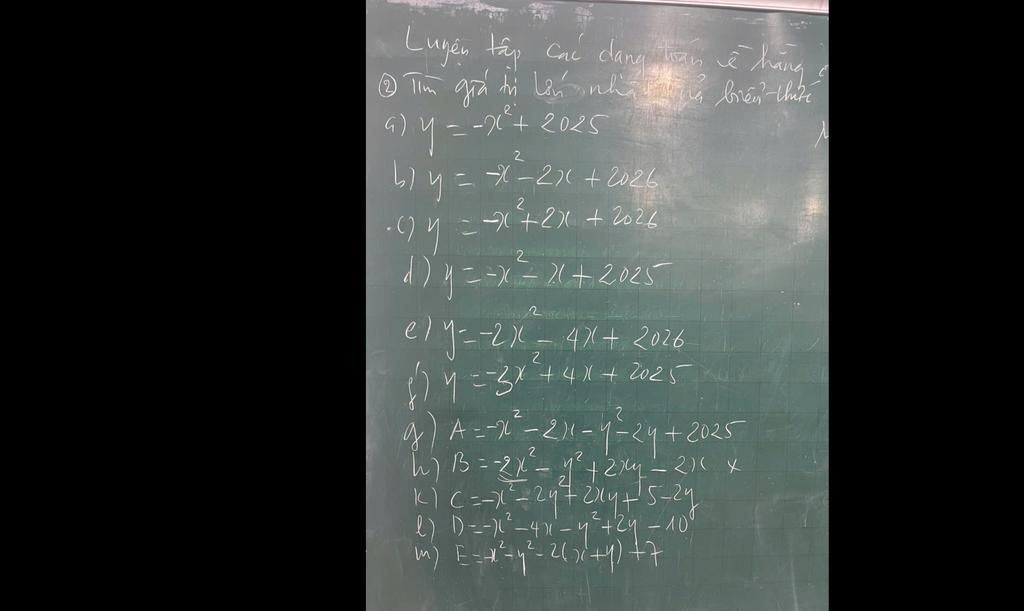 Luyện tập các dạng toán về hằng
② Tìm giá trị lớn nhất của biểu thức
a) y = -x² + 2025
b) y = -x² - 2x + 2026
c) y = -x² + 2x + 2026
d) y = -x² - x + 2025
e) y = -2x² - 4x + 2026
f) y = -3x² + 4x + 2025
g) A = -x² - 2x - y² - 2y + 2025
h) B = -2x² - y² + 2xy - 2x
k) C = -x² - 2y² - 2xy + 5 - 2y
l) D = -x² - 4x - y² + 2y - 10
m) E = -x² - y² - 2(x + y) + 7